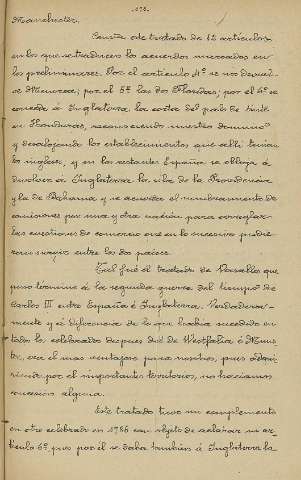 173.
Manchester.
Consta éste tratado de 12 artículos
en los que se traducen los acuerdos marcados en
los preliminares. Por el artículo 4º se nos devuel-
ve Menorca; por el 5º las dos Floridas; por el 6º se
concede á Inglaterra la corta del palo de tinte
en Honduras, reconociendo nuestro dominio
y desalojando los establecimientos que allí tenían
los ingleses, y en los restantes España se obliga á
devolver á Inglaterra la isla de la Providencia
y la de Bahama y se acuerda el nombramiento de
comisiones por una y otra nación para arreglar
las cuestiones de comercio que en lo sucesivo pudie-
ron surgir entre los dos países.
Tal fué el tratado de Versalles que
puso término á la segunda guerra del tiempo de
Carlos III entre España é Inglaterra. Verdadera-
mente y á diferencia de lo que había sucedido en
todos los celebrados después del de Westfalia ó Muns-
ter, era el mas ventajoso para nosotros, pues adqui-
riendo por él importantes territorios, no hacíamos
concesión alguna.
Este tratado tuvo un complemento
en otro celebrado en 1786 con objeto de aclarar su ar-
tículo 6º pues por él se daba también á Inglaterra la